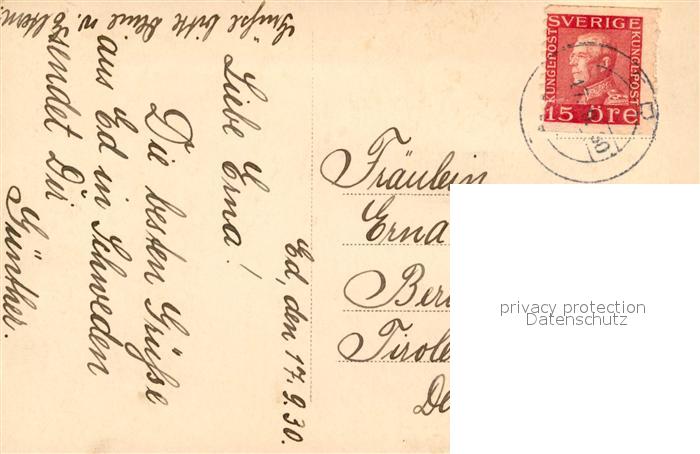 Ed, den 17.9.30.
Liebe Erna!
Die besten Grüße
aus Ed in Schweden
sendet Dir
Günther.
Grüße bitte Deine w. Eltern.
SVERIGE
KUNGL·POST
KUNGL·POST
15 ÖRE
Fräulein
Erna
Ber
Tirole
De
privacy protection
Datenschutz